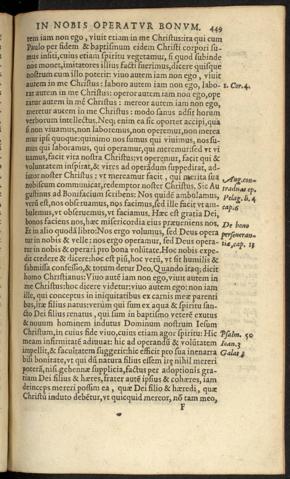 IN NOBIS OPERATVR BONVM. 449
tem iam non ego, viuit etiam in me Christus: ita qui cum
Paulo per fidem & baptismum eidem Christi corpori su-
mus insiti, cuius etiam spiritu vegetamur, si quod subinde
nos monet, imitatores illius facti fuerimus, dicere quisque
nostrum cum illo poterit: viuo autem iam non ego, viuit
autem in me Christus: laboro autem iam non ego, labo-
rat autem in me Christus: operor autem iam non ego, ope
ratur autem in me Christus: mereor autem iam non ego,
meretur autem in me Christus: modo sanus adsit horum
verborum intellectus. Neq; enim ea sic oportet accipi, quasi
si non viuamus, non laboremus, non operemur, non merea
mur ipsi quoque: quinimo nos sumus qui viuimus, nos su-
mus qui laboramus, qui operamur, qui meremur: sed vt vi
uamus, facit vita nostra Christus: vt operemur, facit qui &
voluntatem inspirat, & vires ad operandum suppeditat, ad-
iutor noster Christus: vt mereamur facit, qui merita sua
nobiscum communicat, redemptor noster Christus. Sic Au
gustinus ad Bonifacium scribens: Nos quidē ambulamus,
verū est, nos obseruamus, nos facimus, sed ille facit vt am-
bulemus, vt obseruemus, vt faciamus. Hæc est gratia Dei,
bonos faciens nos, hæc misericordia eius præueniens nos.
Et in alio quodā libro: Nos ergo volumus, sed Deus opera
tur in nobis & velle: nos ergo operamur, sed Deus opera-
tur in nobis & operari pro bona volūtate. Hoc nobis expe-
dit credere & dicere: hoc est piū, hoc verū, vt sit humilis &
submissa confessio, & totum detur Deo. Quando itaq; dicit
homo Christianus: Viuo autē iam non ego, viuit autem in
me Christus: hoc dicere videtur: viuo autem ego: non iam
ille, qui conceptus in iniquitatibus ex carnis meæ parenti
bus, iræ filius
cto Dei filius renatus, qui sum in baptismo veterē exutus
& nouum hominem indutus Dominum nostrum Iesum
Christum, in cuius fide viuo, cuius etiam agor spiritu: Hic
meam infirmitatē adiuuat: hic ad operandū & voluntatem
impellit, & facultatem suggerit: hic efficit pro sua inenarra
bili bonitate, vt qui dū natura filius essem iræ nihil mereri
poterā, nisi gehennæ supplicia, factus per adoptionis gra-
tiam Dei filius & hæres, frater autē ipsius & cohæres, iam
deinceps mereri possim ea, quæ Dei filio & hæredi, quæ
Christū induto debētur, vt quicquid mereor, nō tam meo,
F
1. Cor. 4.
Pelag. li. 4
cap. 6
De bono
perseueran-
tiæ, cap. 13
Psalm. 50
Ioan. 3
Galat.